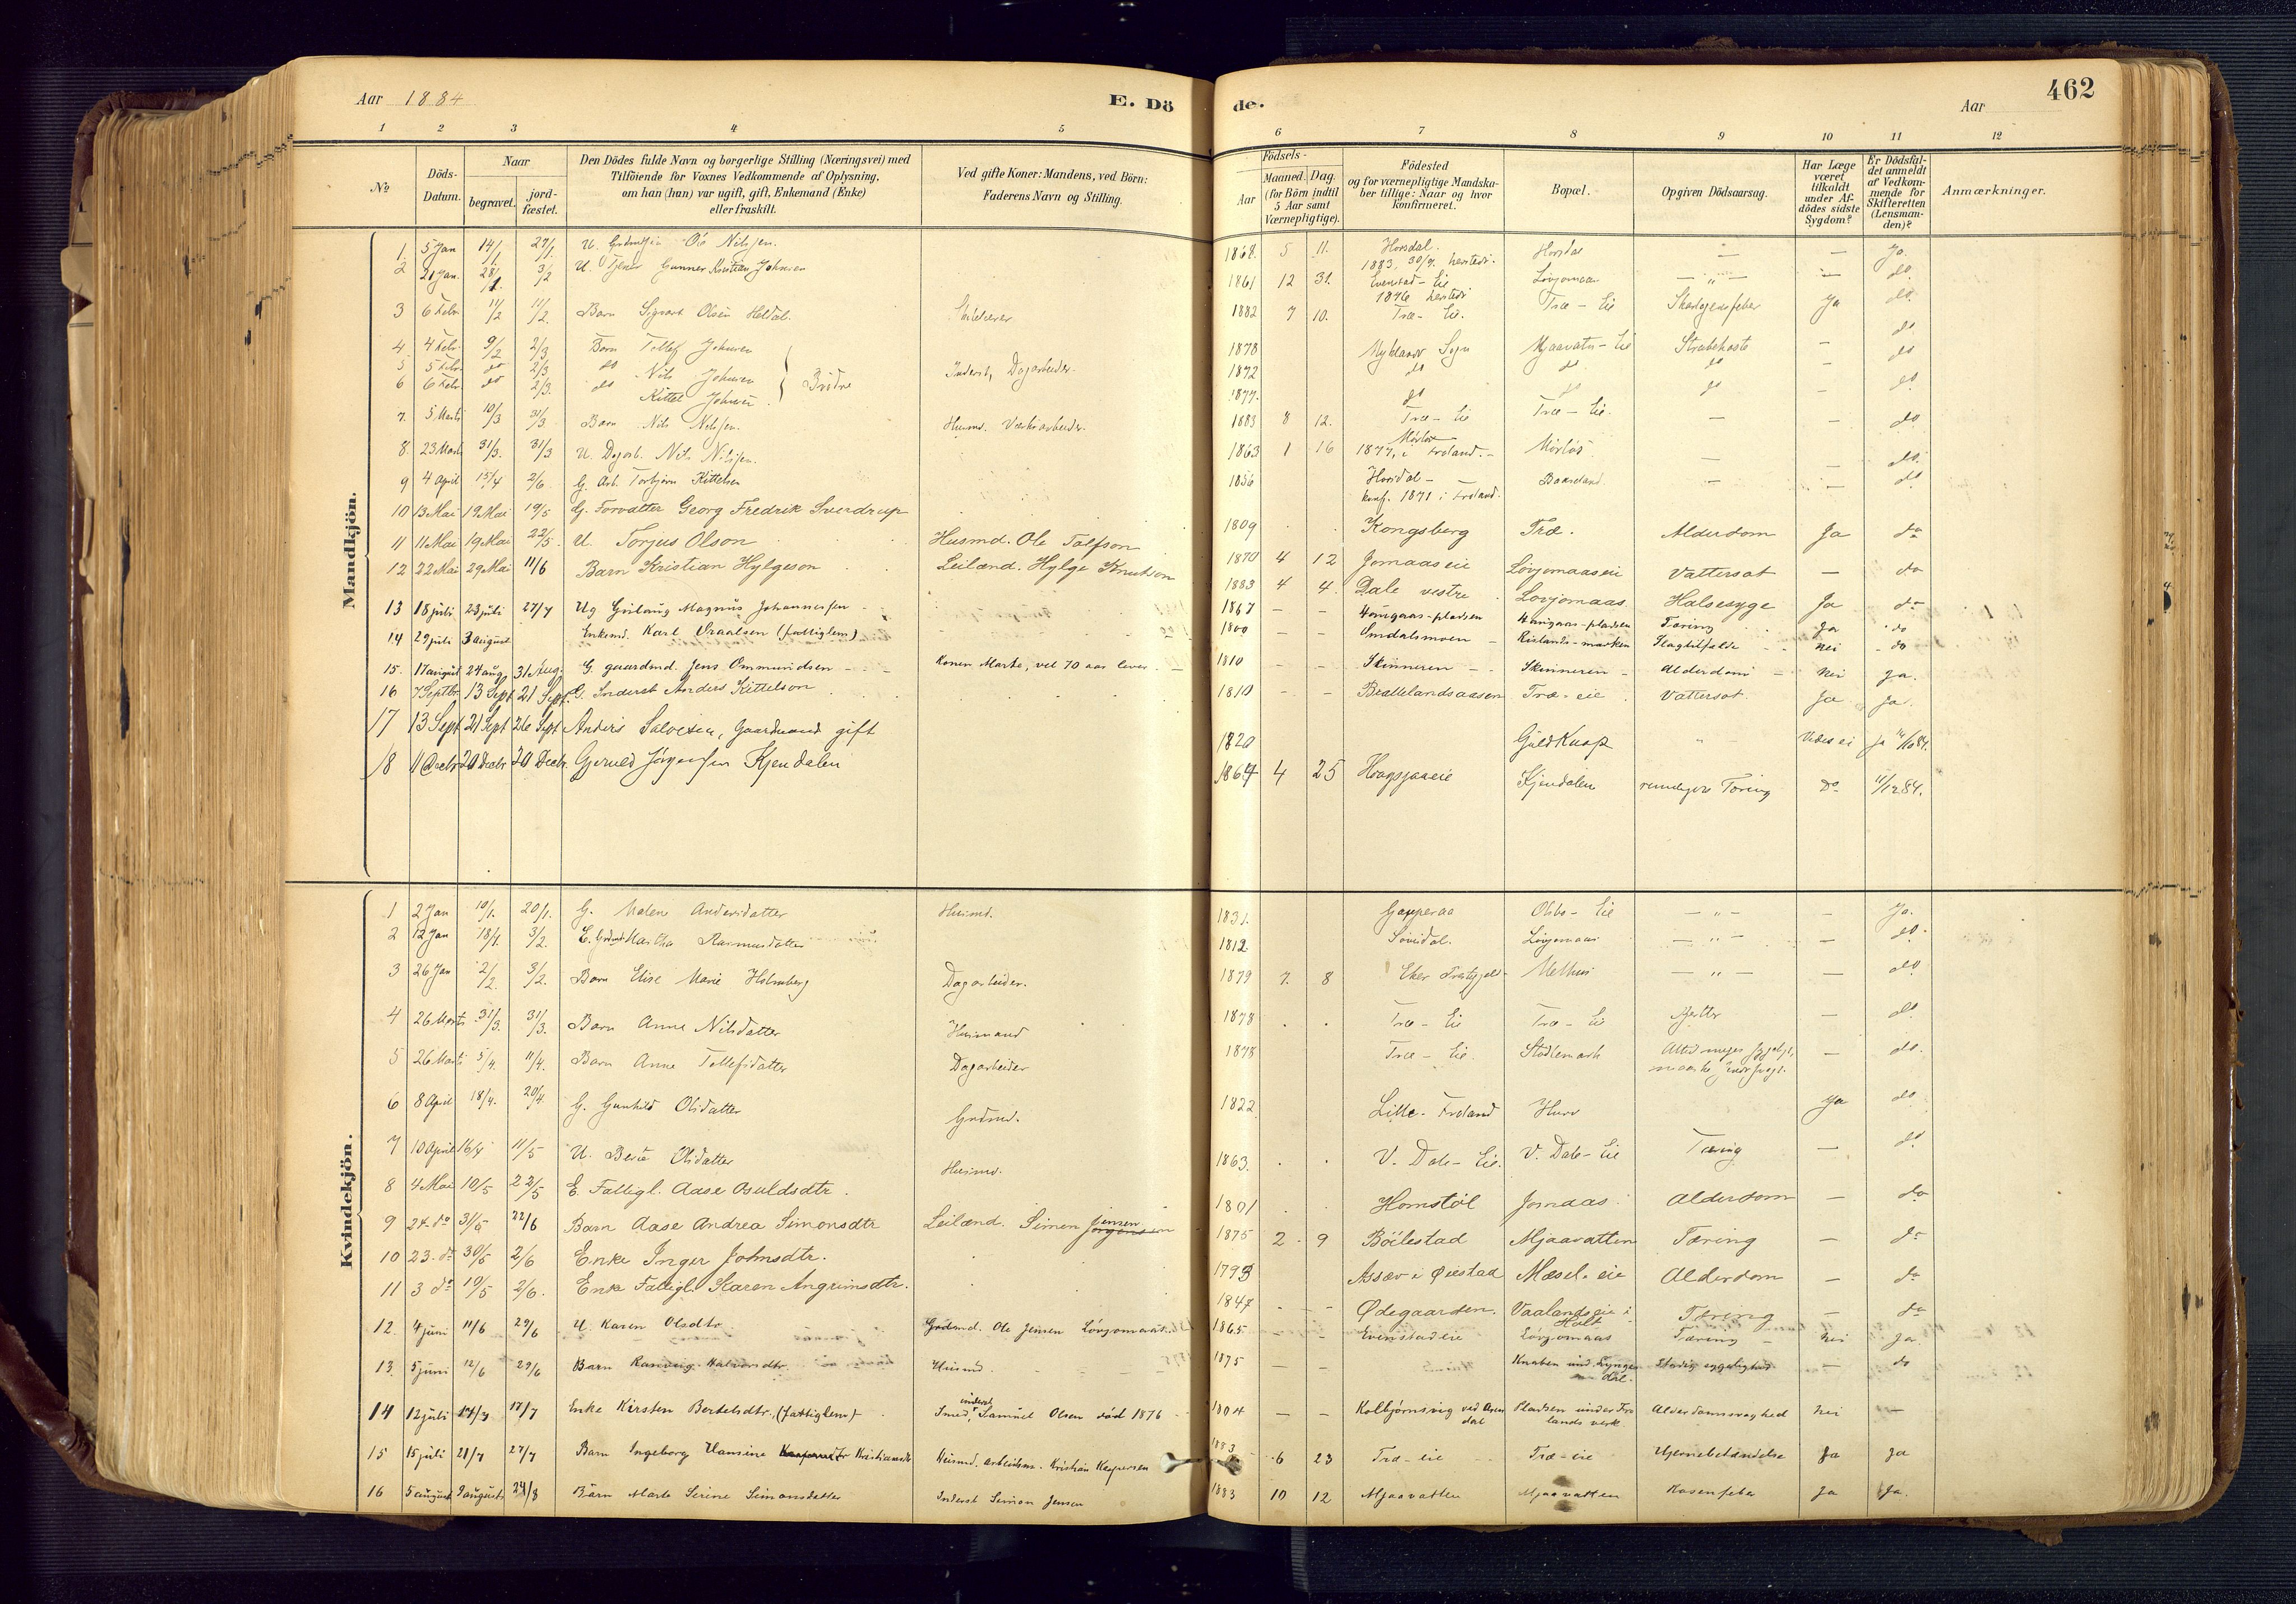 Aar 1884
E. Dö
de.
Aar
462
1 2 3 4 5 6 7 8 9 10 11 12
№
Döds-Datum.
Naar
begravet.
jord-fæstet.
Den Dödes fulde Navn og borgerlige Stilling (Næringsvei) med
Tilföiende for Voxnes Vedkommende af Oplysning,
om han (hun) var ugift, gift, Enkemand (Enke)
eller fraskilt.
Ved gifte Koner: Mandens, ved Börn:
Faderens Navn og Stilling.
Födsels-
Aar
Maaned. Dag.
(for Börn indtil
5 Aar samt
Værnepligtige).
Födested
og for værnepligtige Mandska-
ber tillige: Naar og hvor
konfirmeret.
Bopæl.
Opgiven Dödsaarsag.
Har Læge
været
tilkaldt
under Af-
dödes sidste
Sygdom?
Er Dödsfal-
det anmeldt
af Vedkom-
mende for
Skifteretten
(Lensman-
den)?
Anmærkninger.
Mandkjön.
1. 5 Jan 14/1 27/1. U. Ole Nilsen. 1868 5 11. Horsdal. Horsdal — — Ja.
1883, 30/9.
2 21 Jan. 28/1. 3/2 U. Gunner Kristian Johnsen 1861 12 31. Evenstad-Eie Lövjomaas — " — — do.
3 6 Febr 11/2 11/2. Barn Sigvart Olsen Heldal. 1882 7 10. Træ-Eie. Træ-Eie Skarlagensfeber Ja do.
4 4 Febr 9/2 2/3 Barn Tollef Johnsen 1878 Myklands Sogn Mjaavatn-Eie Strubehoste — do
5 5 Febr do 2/3 do Nils Johnsen } Brödre Inderst, Dagarbeider. 1872 do do do — do
6 6 Febr do 2/3. do Kittel Johnsen 1877. do do do — do
7. 5 Marts 10/3 31/3 Barn Nils Nilsen. Husmd. Værksarbeider. 1883 8 12. Træ-Eie Træ-Eie. — — do
8. 23 Marts 31/3. 31/3 U. Dagarb. Nils Nilsen. 1863 1 16 Mörlös Mörlös — — do.
1877, i Froland.
9 4 April 15/4 2/6 G. Arb. Torbjörn Kittelsen 1856 Horsdal - Baaseland — — do
konf. 1871 i Froland.
10 13 Mai 19 Mai 19/5 G. Forvalter Georg Fredrik Sverdrup 1809 Kongsberg Træ. Alderdom Ja do
11 11 Mai 19 Mai 22/5. U. Torjus Olson Husmd. Ole Tolfson 1870 4 12 Jomaaseie Lövjomaaseie Vattersot — do
12 22 Mai 29 Mai 11/6 Barn Kristian Hylgeson Leilænd. Hylge Knutson 1883 4 4. Dale vestre Lovjomaas. Halsesyge Ja do
13 18 juli 23 juli 27/7 Ug Gislaug Magnus Johannessen 1867 — — Haugaas-pladsen Haugaas-pladsen Tæring Ja do
14 29 juli 3 august Enkemd. Karl Vraalsen (fattiglem) 1800 — — Smdalsmoen Rislands-marken Slagtilfælde nei do
15. 17 august 24 aug. 31 Aug. G. gaardmd. Jens Ommundsen Konen Marte, vel 70 aar lever. 1810 — — Skinneren Skinneren Alderdom Nei ja.
16 7 Septbr. 13 Sept 21 Sept. G. Inderst Anders Kittelson 1810 — — Brattelandsaasen Træ-eie Vattersot. Ja Ja.
17 13 Sept 21 Sept 26 Sept Anders Salvesen, Gaardmand gift 1820 Guldknap " Vides ei Ja 14/1084.
18 11 Decbr 20 Decbr 20 Decbr. Jörgensen Kjendalen 1864 4 25 Kjendalen Tæring Do 11/1284.
Kvindekjön.
1 2 Jan 10/1. 20/1. G. Malene Andersdatter Husmd. 1831. Gapperaa Osbo-Eie — " — — Ja.
2 12 Jan 18/1. 3/2. E. Martha Rasmusdatter 1812. Lövjomaas — " — — do.
3 26 Jan 2/2. 3/2. Barn Elise Marie Holmberg Dagarbeider. 1879 7. 8 Eker Præstegjeld Melhus — " — — do
4 26 Marts 31/3. 31/3. Barn Anne Nilsdatter Husmand 1878 Træ-Eie Træ-Eie — do
5 26 Marts 5/4. 11/4. Barn Anne Tollefsdatter Dagarbeider 1878 Træ-Eie. Stadlemark — do.
6 8 April 18/4. 20/4. G. Gunhild Olsdatter Grdmd. 1822 Lille-Froland Hurv Ja do
7 10 April 16/4 11/5 U. Berte Olsdatter Husmd. 1863. V. Dale-Eie. V. Dale-Eie Tæring — do
8 4 Mai 10/5 22/5 E. Fattigl. Aase Osuldsdtr. 1801 Homstöl Jomaas. Alderdom — do
9 24 do 31/5 22/6 Barn Aase Andrea Simonsdtr Leilænd. Simon Jensen 1875 2 9 Böilestad Mjaavatten Tæring — do
10 23. do 30/5 2/6 Enke Inger Johnsdtr. 1793 Assæv i Öiestad Mæsel-eie Alderdom — do
11 3 do 10/5 2/6. Enke Fattigl. Karen Angrimsdtr. 1847 Ödegaarden. Vaalandseie i Holt Tæring — do
12. 4 juni 11/6 29/6 U. Karen Olsdtr. Grdmd. Ole Jensen Lövjomaas 1865 — — Evenstadeie Lövjomaas Tæring nei Ja
13. 5 juni 12/6 29/6 Barn Ranveig Halvorsdtr. Husmd. 1875 — — Knaben und. Lyngdal. Stadig sygelighed — do
14 12 juli 17/7 17/7 Enke Kirsten Bertelsdtr. (fattiglem) Smed, inderst Samuel Olsen död 1876 1804 — — Kolbjörnsvig ved Arendal Pladsen under Frolands verk Alderdomssvaghed nei —
15 15 juli 21/7 27/7 Barn Ingeborg Hansine Kristiansdtr Husmd. arbeidsm. Kristian Kaspersen 1883 6 23 Træ-eie Træ-eie Hjernebetændelse Ja Ja
16 5 august 9 august 24/8 Barn Marte Serine Simonsdatter Inderst Simon Jensen 1883 10 12 Mjaavatten Mjaavatten Rosenfeber Ja Ja.